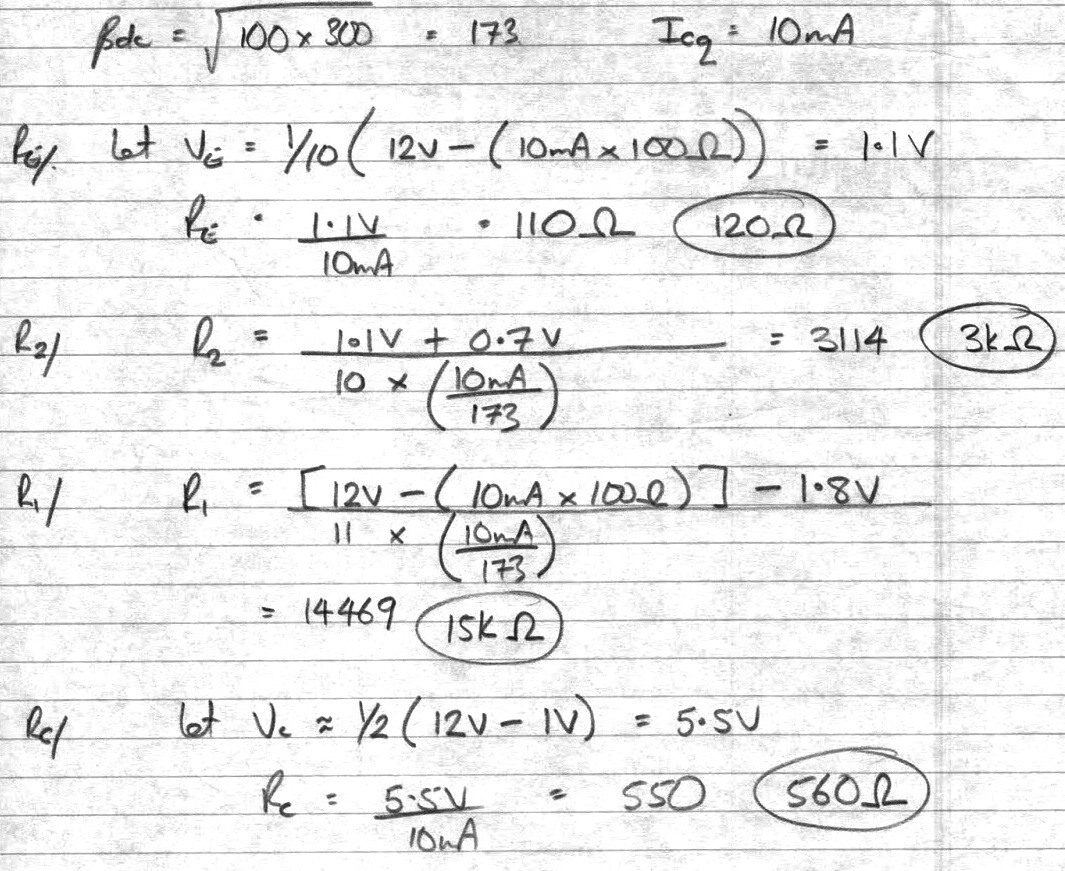 βdc = √100 x 300 = 173 Icq = 10mA
RE/. let VE = 1/10 ( 12V - ( 10mA x 100Ω)) = 1.1V
RE = 1.1V / 10mA = 110Ω 120Ω
R2/ R2 = 1.1V + 0.7V / 10 x (10mA / 173) = 3114 3kΩ
R1/ R1 = [12V - ( 10mA x 100Ω) ] - 1.8V / 11 x (10mA / 173)
= 14469 15kΩ
Rc/ let Vc ≈ 1/2 ( 12V - 1V) = 5.5V
Rc = 5.5V / 10mA = 550 560Ω